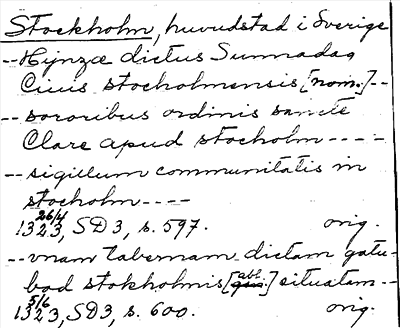 Stockholm, huvudstad i Sverige
-- Hijnzæ dictus Sunnadag
Ciuis stocholmensis [nom.] --
-- sororibus ordinis sancte
Clare apud stocholm ----
-- sigillum communitatis in
stocholm ----
1323 26/4, SD3, s. 597. orig.
-- vnam tabernam dictam gatu-
bod stokholmis [abl.] situatam --
1323 5/6, SD3, s. 600. orig.